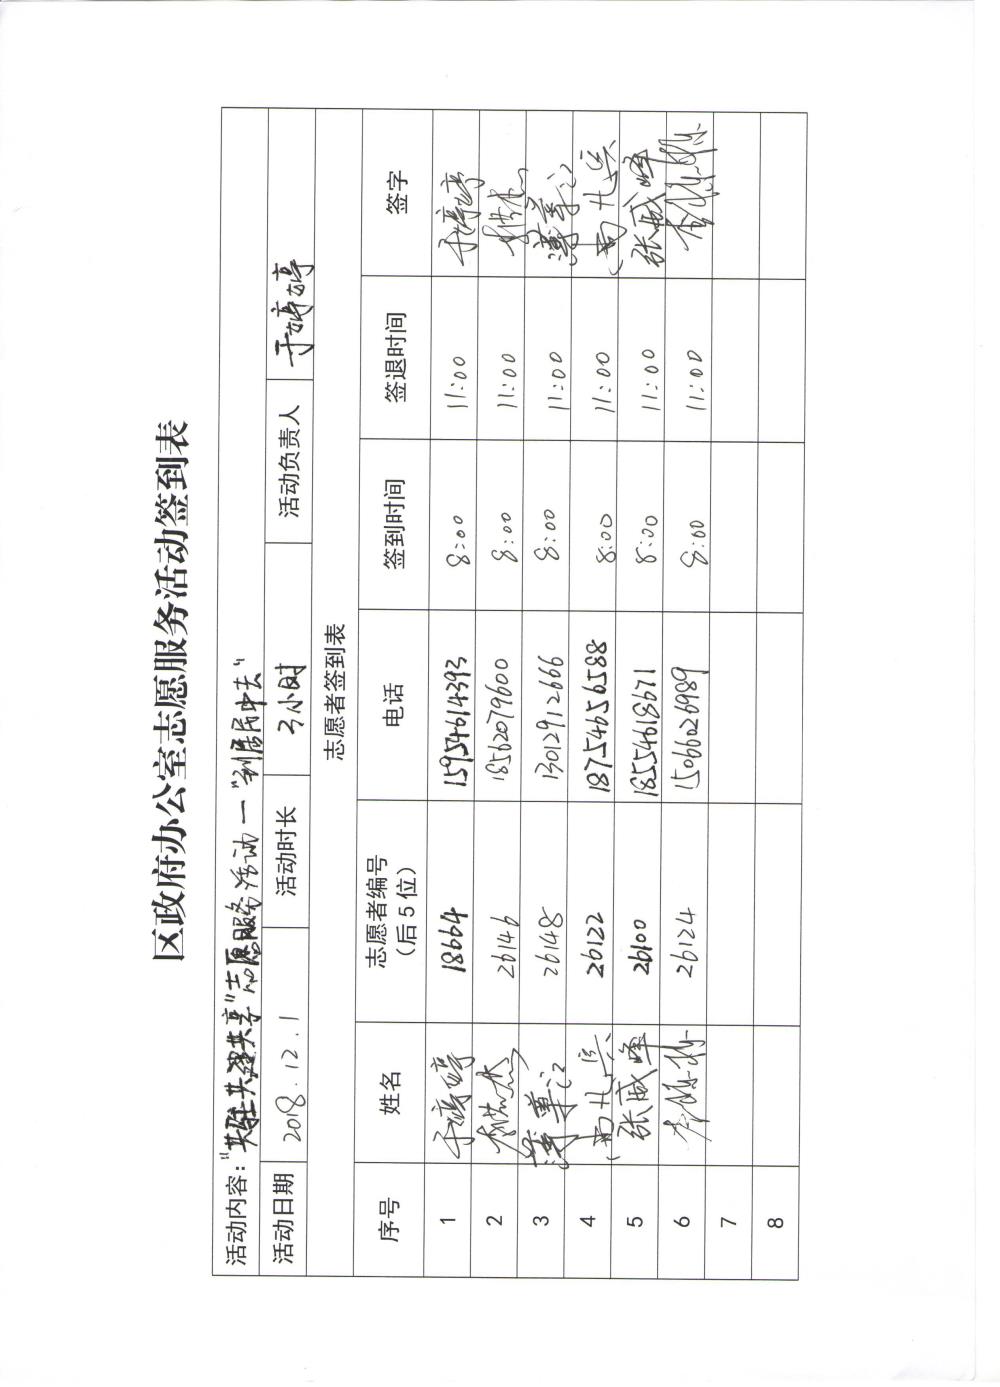 区政府办公室志愿服务活动签到表
活动内容：“共驻共建共享”志愿服务活动—“到居民中去”
活动日期 2018.12.1 活动时长 3小时 活动负责人 于婷婷
志愿者签到表
序号 姓名 志愿者编号（后5位） 电话 签到时间 签退时间 签字
1 于婷婷 18664 15954614393 8:00 11:00 于婷婷
2 26146 18562079600 8:00 11:00
3 26148 13012912666 8:00 11:00
4 26122 18754656588 8:00 11:00
5 张威峰 26100 18554618671 8:00 11:00 张威峰
6 26124 15066026989 8:00 11:00
7
8